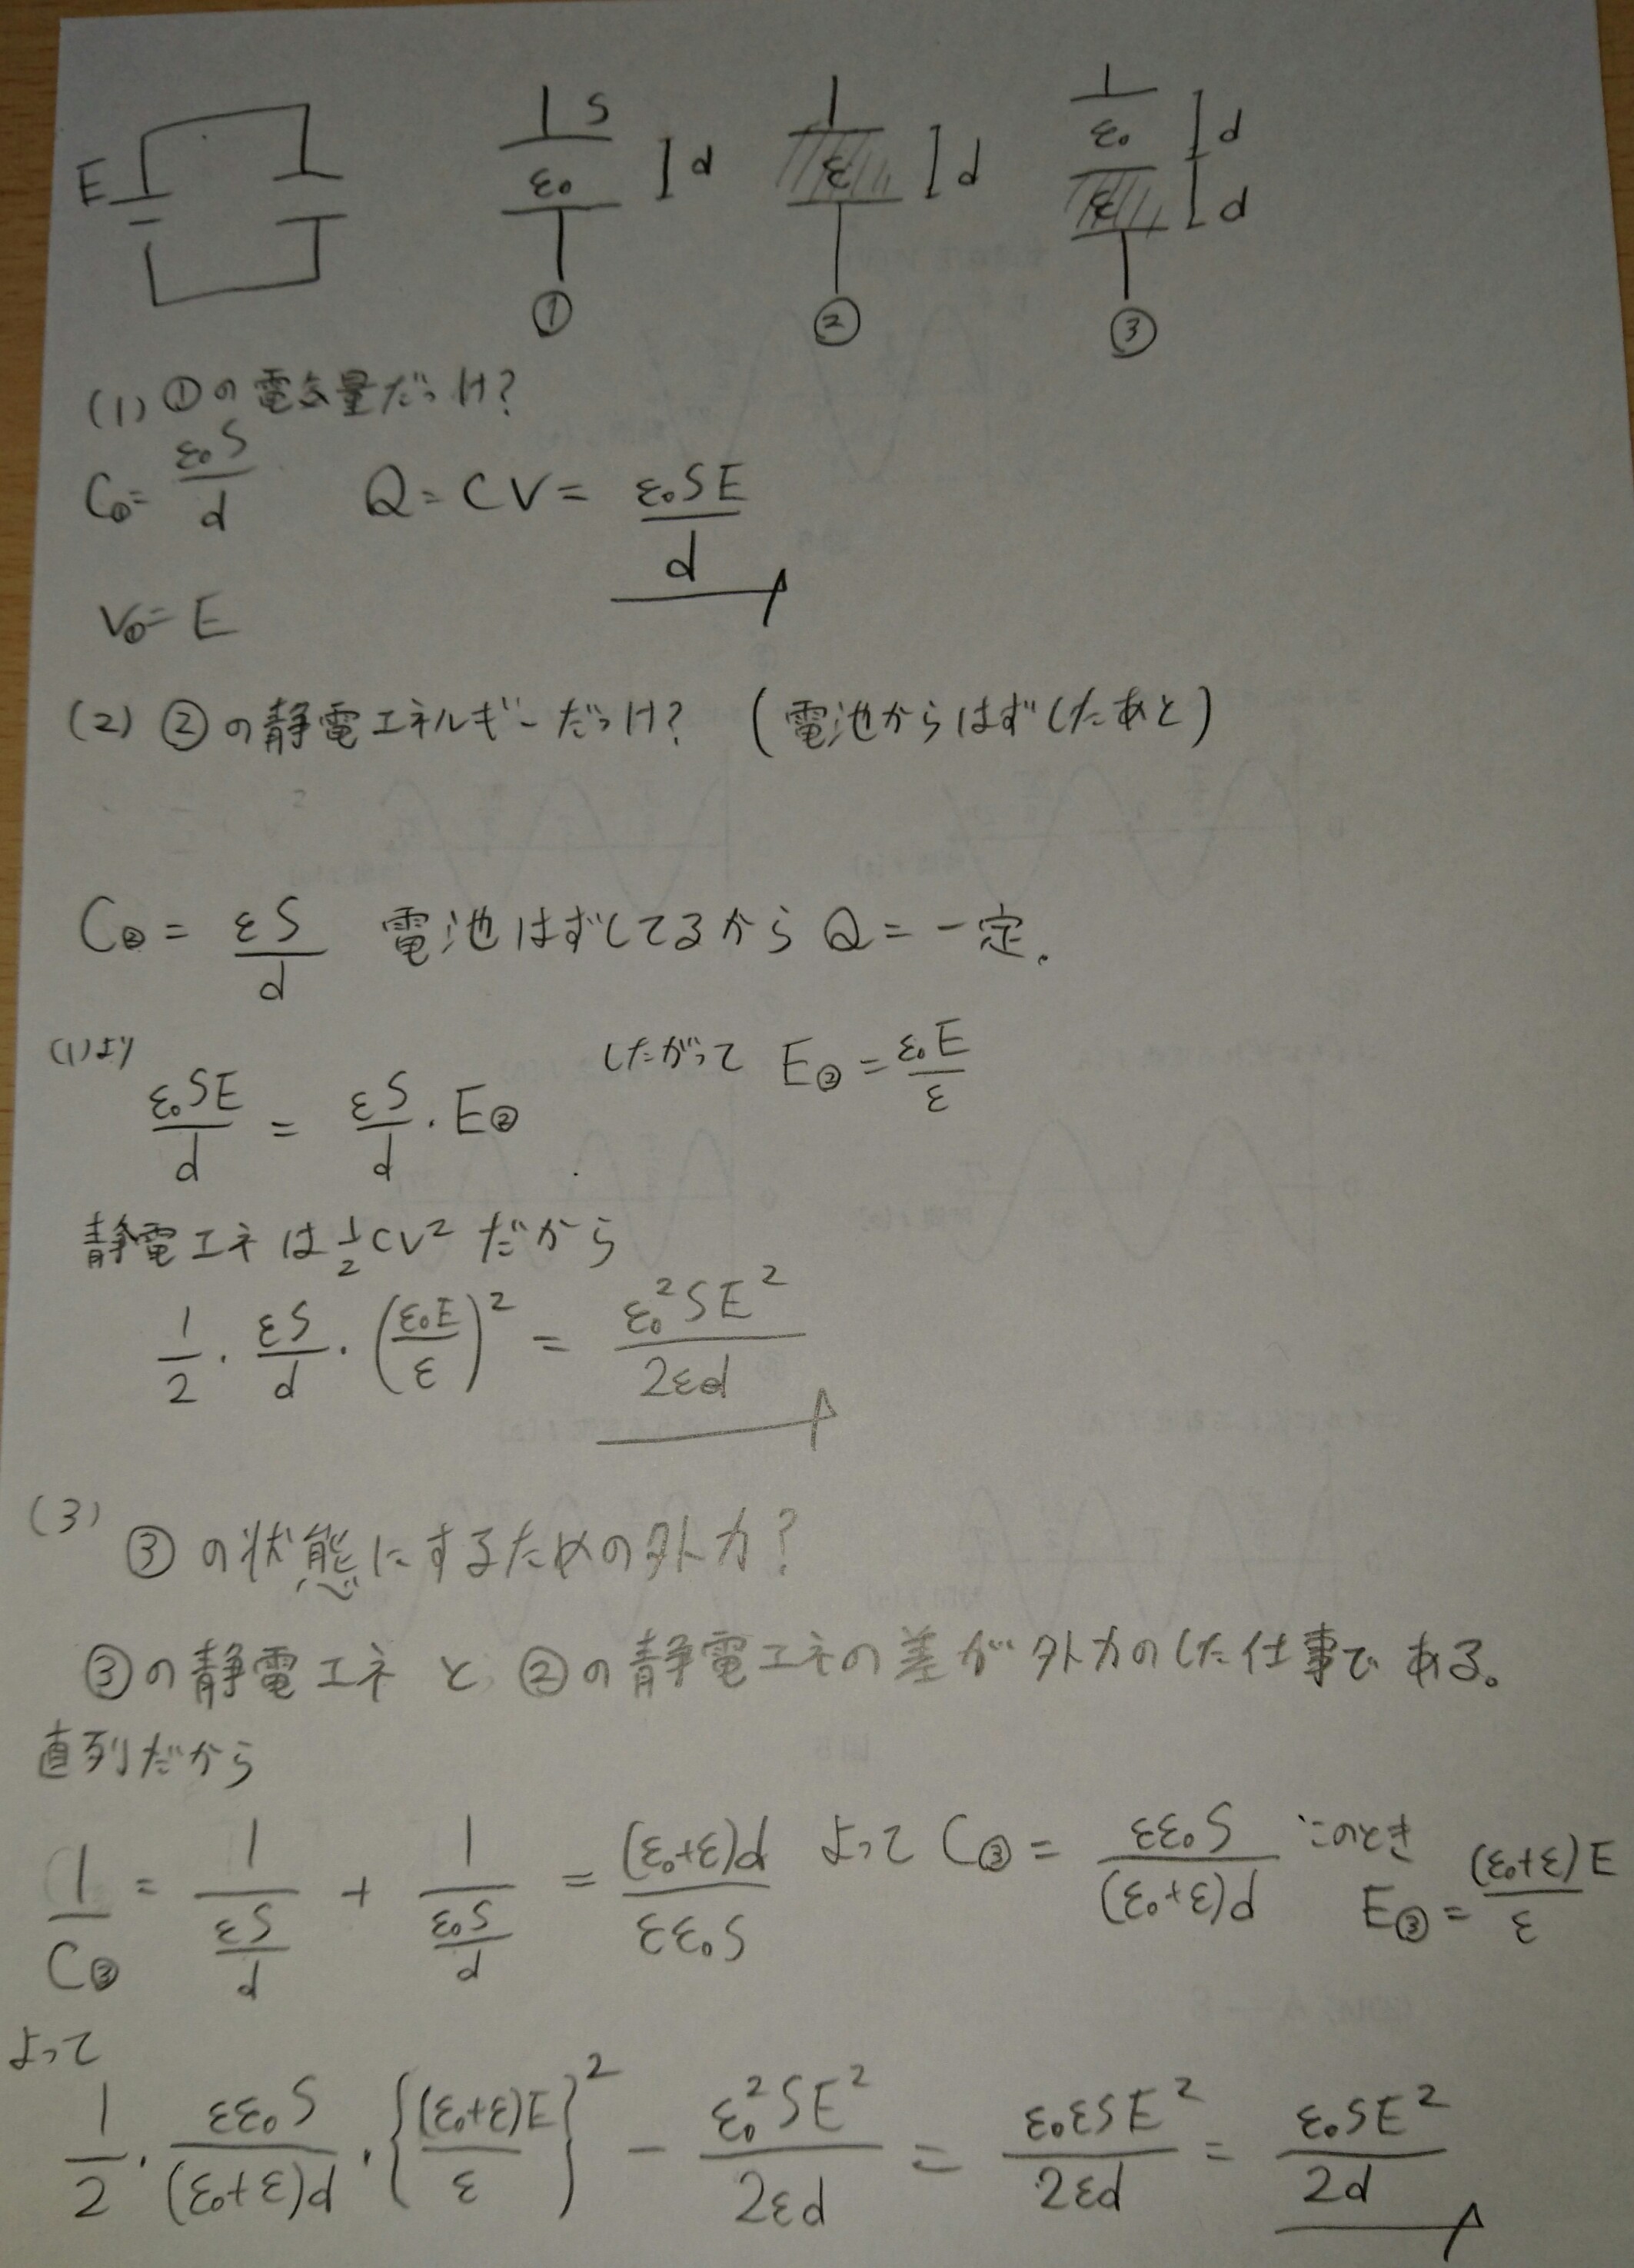 E
S
ε₀ ]d
ε ]d
ε₀ ]d
ε ]d
① ② ③
(1) ①の電気量だっけ?
C① = ε₀S/d Q = CV = ε₀SE/d
V① = E
(2) ②の静電エネルギーだっけ? (電池からはずしたあと)
C② = εS/d 電池はずしてるから Q = 一定.
(1)より
ε₀SE/d = εS/d・E② したがって E② = ε₀E/ε
静電エネは 1/2 CV² だから
1/2・εS/d・(ε₀E/ε)² = ε₀²SE²/2εd
(3)
③の状態にするための外力?
③の静電エネと②の静電エネの差が外力のした仕事である。
直列だから
1/C③ = 1/(εS/d) + 1/(ε₀S/d) = (ε₀+ε)d/εε₀S よって C③ = εε₀S/(ε₀+ε)d このとき E③ = (ε₀+ε)E/ε
よって
1/2・εε₀S/(ε₀+ε)d・{(ε₀+ε)E/ε}² - ε₀²SE²/2εd = ε₀εSE²/2εd = ε₀SE²/2d